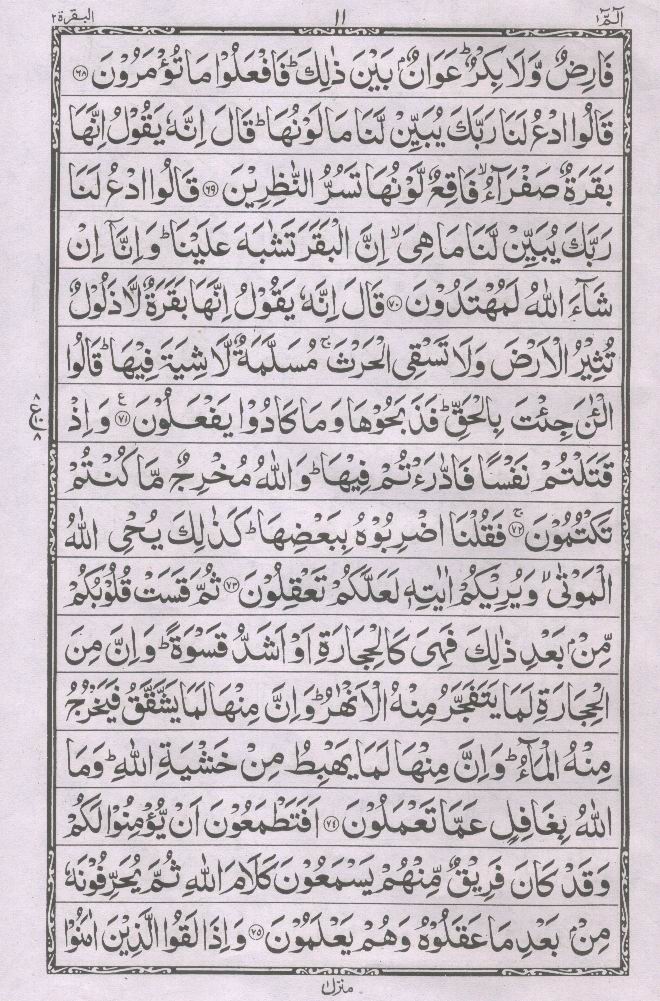 الٓمّٓ ١ ١١ البقرة ٢
فَارِضٌ وَّلَا بِكْرٌ ؕ عَوَانٌۢ بَيْنَ ذٰلِكَ ؕ فَافْعَلُوْا مَا تُؤْمَرُوْنَ ﴿۶۸﴾
قَالُوا ادْعُ لَنَا رَبَّكَ يُبَيِّنْ لَّنَا مَا لَوْنُهَا ؕ قَالَ اِنَّهٗ يَقُوْلُ اِنَّهَا
بَقَرَةٌ صَفْرَآءُ ۙ فَاقِعٌ لَّوْنُهَا تَسُرُّ النّٰظِرِيْنَ ﴿۶۹﴾ قَالُوا ادْعُ لَنَا
رَبَّكَ يُبَيِّنْ لَّنَا مَا هِىَ ۙ اِنَّ الْبَقَرَ تَشٰبَهَ عَلَيْنَا ؕ وَ اِنَّآ اِنْ
شَآءَ اللّٰهُ لَمُهْتَدُوْنَ ﴿۷۰﴾ قَالَ اِنَّهٗ يَقُوْلُ اِنَّهَا بَقَرَةٌ لَّا ذَلُوْلٌ
تُثِيْرُ الْاَرْضَ وَلَا تَسْقِى الْحَرْثَ ۚ مُسَلَّمَةٌ لَّا شِيَةَ فِيْهَا ؕ قَالُوا
الْـٰٔنَ جِئْتَ بِالْحَقِّ ؕ فَذَبَحُوْهَا وَمَا كَادُوْا يَفْعَلُوْنَ ﴿۷۱﴾ ع وَ اِذْ
قَتَلْتُمْ نَفْسًا فَادّٰرَءْتُمْ فِيْهَا ؕ وَاللّٰهُ مُخْرِجٌ مَّا كُنْتُمْ
تَكْتُمُوْنَ ﴿۷۲﴾ ۚ فَقُلْنَا اضْرِبُوْهُ بِبَعْضِهَا ؕ كَذٰلِكَ يُحْىِ اللّٰهُ
الْمَوْتٰى ۙ وَيُرِيْكُمْ اٰيٰتِهٖ لَعَلَّكُمْ تَعْقِلُوْنَ ﴿۷۳﴾ ثُمَّ قَسَتْ قُلُوْبُكُمْ
مِّنْۢ بَعْدِ ذٰلِكَ فَهِىَ كَالْحِجَارَةِ اَوْ اَشَدُّ قَسْوَةً ؕ وَ اِنَّ مِنَ
الْحِجَارَةِ لَمَا يَتَفَجَّرُ مِنْهُ الْاَنْهٰرُ ؕ وَ اِنَّ مِنْهَا لَمَا يَشَّقَّقُ فَيَخْرُجُ
مِنْهُ الْمَآءُ ؕ وَ اِنَّ مِنْهَا لَمَا يَهْبِطُ مِنْ خَشْيَةِ اللّٰهِ ؕ وَمَا
اللّٰهُ بِغَافِلٍ عَمَّا تَعْمَلُوْنَ ﴿۷۴﴾ اَفَتَطْمَعُوْنَ اَنْ يُّؤْمِنُوْا لَكُمْ
وَقَدْ كَانَ فَرِيْقٌ مِّنْهُمْ يَسْمَعُوْنَ كَلَامَ اللّٰهِ ثُمَّ يُحَرِّفُوْنَهٗ
مِنْۢ بَعْدِ مَا عَقَلُوْهُ وَهُمْ يَعْلَمُوْنَ ﴿۷۵﴾ وَ اِذَا لَقُوا الَّذِيْنَ اٰمَنُوْا
منزل ١